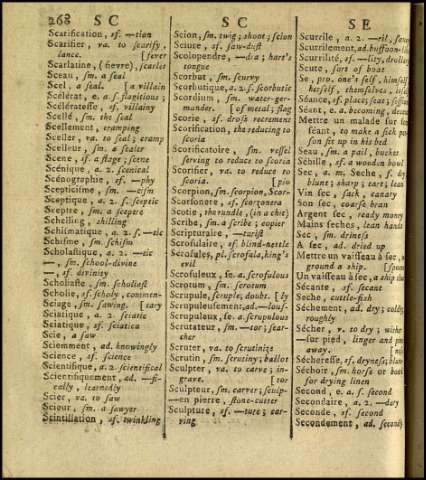 268 S C
S C
S E
Scarification, sf. —tion
Scarifier, va. to scarify,
lance. [fever
Scarlatine, (fievre), scarlet
Sceau, sm. a seal
Scel, a seal. [a villain
Scélérat, e. a. f. flagitious;
Scélératesse, sf. villainy
Scellé, sm. the seal
Scellement, cramping
Sceller, va. to seal; cramp
Scelleur, sm. a sealer
Scene, sf. a stage; scene
Scénique, a. 2. scenical
Scénographie, sf. —phy
Scepticisme, sm. —cism
Sceptique, a. 2. s. sceptic
Sceptre, sm. a sceptre
Schelling, shilling
Schismatique, a. 2. s. —tic
Schisme, sm. schism
Scholastique, a. 2. —tic
—, sm. school-divine
—, sf. divinity
Scholiaste, sm. scholiast
Scholie, sf. scholy, commen-
Sciage, sm. sawing. [tary
Sciatique, a. 2. sciatic
Sciatique, sf. sciatica
Scie, a saw
Sciemment, ad. knowingly
Science, sf. science
Scientifique, a. 2. scientifical
Scientifiquement, ad. —fi-
cally, learnedly
Scier, va. to saw
Scieur, sm. a sawyer
Scintillation, sf. twinkling
Scion, sm. twig; shoot; scion
Sciure, sf. saw-dust
Scolopendre, —dra; hart's
tongue
Scorbut, sm. scurvy
Scorbutique, a. 2. s. scorbutic
Scordium, sm. water-ger-
mander. [of metal; slag
Scorie, sf. dross recrement
Scorification, the reducing to
scoria
Scorificatoire, sm. vessel
serving to reduce to scoria
Scorifier, va. to reduce to
scoria. [pio
Scorpion, sm. scorpion, Scor-
Scorsonere, sf. scorzonera
Scotie, the rundle, (in a chit)
Scribe, sm. a scribe; copier
Scripturaire, —turist
Scrofulaire, sf. blind-nettle
Scrofules, pl. scrofala, king's
evil
Scrofuleux, se. a. scrofulous
Scrotum, sm. scrotum
Scrupule, scruple, doubt. [ly
Scrupuleusement, ad. —lous-
Scrupuleux, se. a. scrupulous
Scrutateur, sm. —tor; sear-
cher
Scruter, va. to scrutinize
Scrutin, sm. scrutiny; ballot
Sculpter, va. to carve; in-
grave. [tor
Sculpteur, sm. carver; sculp-
—en pierre, stone-cutter
Sculpture, sf. —ture; car-
ving
Scurrile, a. 2. —ril,
Scurrilement, ad. buffoon-
Scurrilité, sf. —lity,
Scute, sort of boat
Se, pro. one's self, himself
herself, themselves,
Séance, sf. place; seat;
Séant, e. a. becoming,
Mettre un malade sur
séant, to make a sick
son sit up in his bed
Seau, sm. a pail, bucket
Sébille, sf. a wooden bowl
Sec, a. m. Seche, f. dry
blunt; sharp; tart; lean
Vin sec, sack, canary
Son sec, coarse bran
Argent sec, ready money
Mains seches, lean hands
Sec, sm. driness
A sec, ad. dried up
Mettre un vaisseau à sec,
ground a ship.
Un vaisseau à sec, a ship
Sécante, sf. secant
Seche, cuttle-fish
Séchement, ad. dry;
roughly
Sécher, v. to dry; wither
—sur pied, linger and
away.
Sécheresse, sf. dryness;
Séchoir, sm. horse or
for drying linen
Second, e. a. s. second
Secondaire, a. 2. —dary
Seconde, sf. second
Secondement, ad. secondly